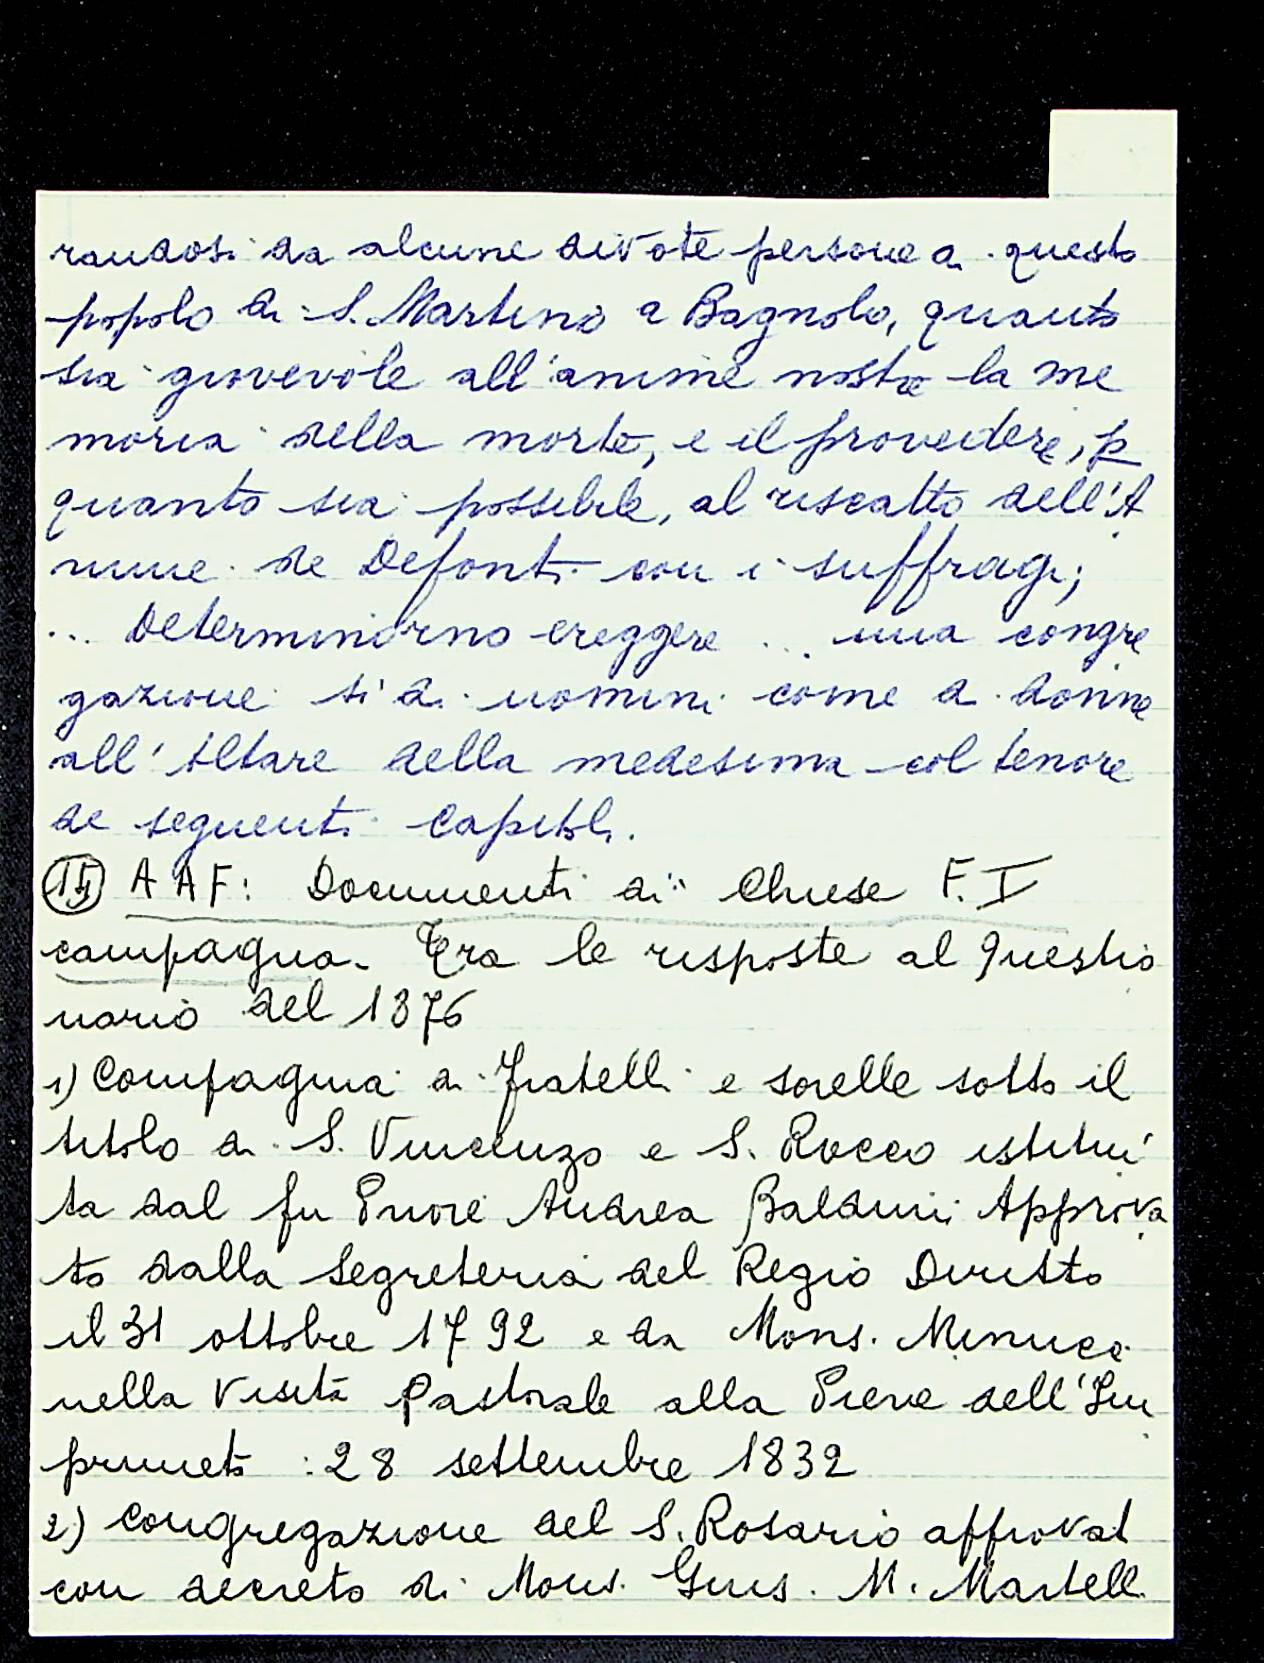 randosi da alcune divote persone di questo
popolo di S. Martino a Bagnolo, quanto
sia giovevole all'anime nostre la me
moria della morte, e il provedere, p
quanto sia possibile, al riscatto dell'A
nime de Defonti con i suffragi;
... Determinorno ereggere ... una congre
gazione sì di uomini come di donne
all'Altare della medesima col tenore
de seguenti Capitoli.
15 AAF: Documenti di Chiese F. I
campagna. Tra le risposte al Questio
nario del 1876
1) Compagnia di Fratelli e sorelle sotto il
titolo di S. Vincenzo e S. Rocco istitui
ta dal fu Priore Andrea Balduini Approva
to dalla Segreteria del Regio Diritto
il 31 ottobre 1792 e da Mons. Minucci
nella Visita Pastorale alla Pieve dell'Im
pruneta : 28 settembre 1832
2) Congregazione del S. Rosario approvat
con decreto di Mons. Gius. M. Martelli